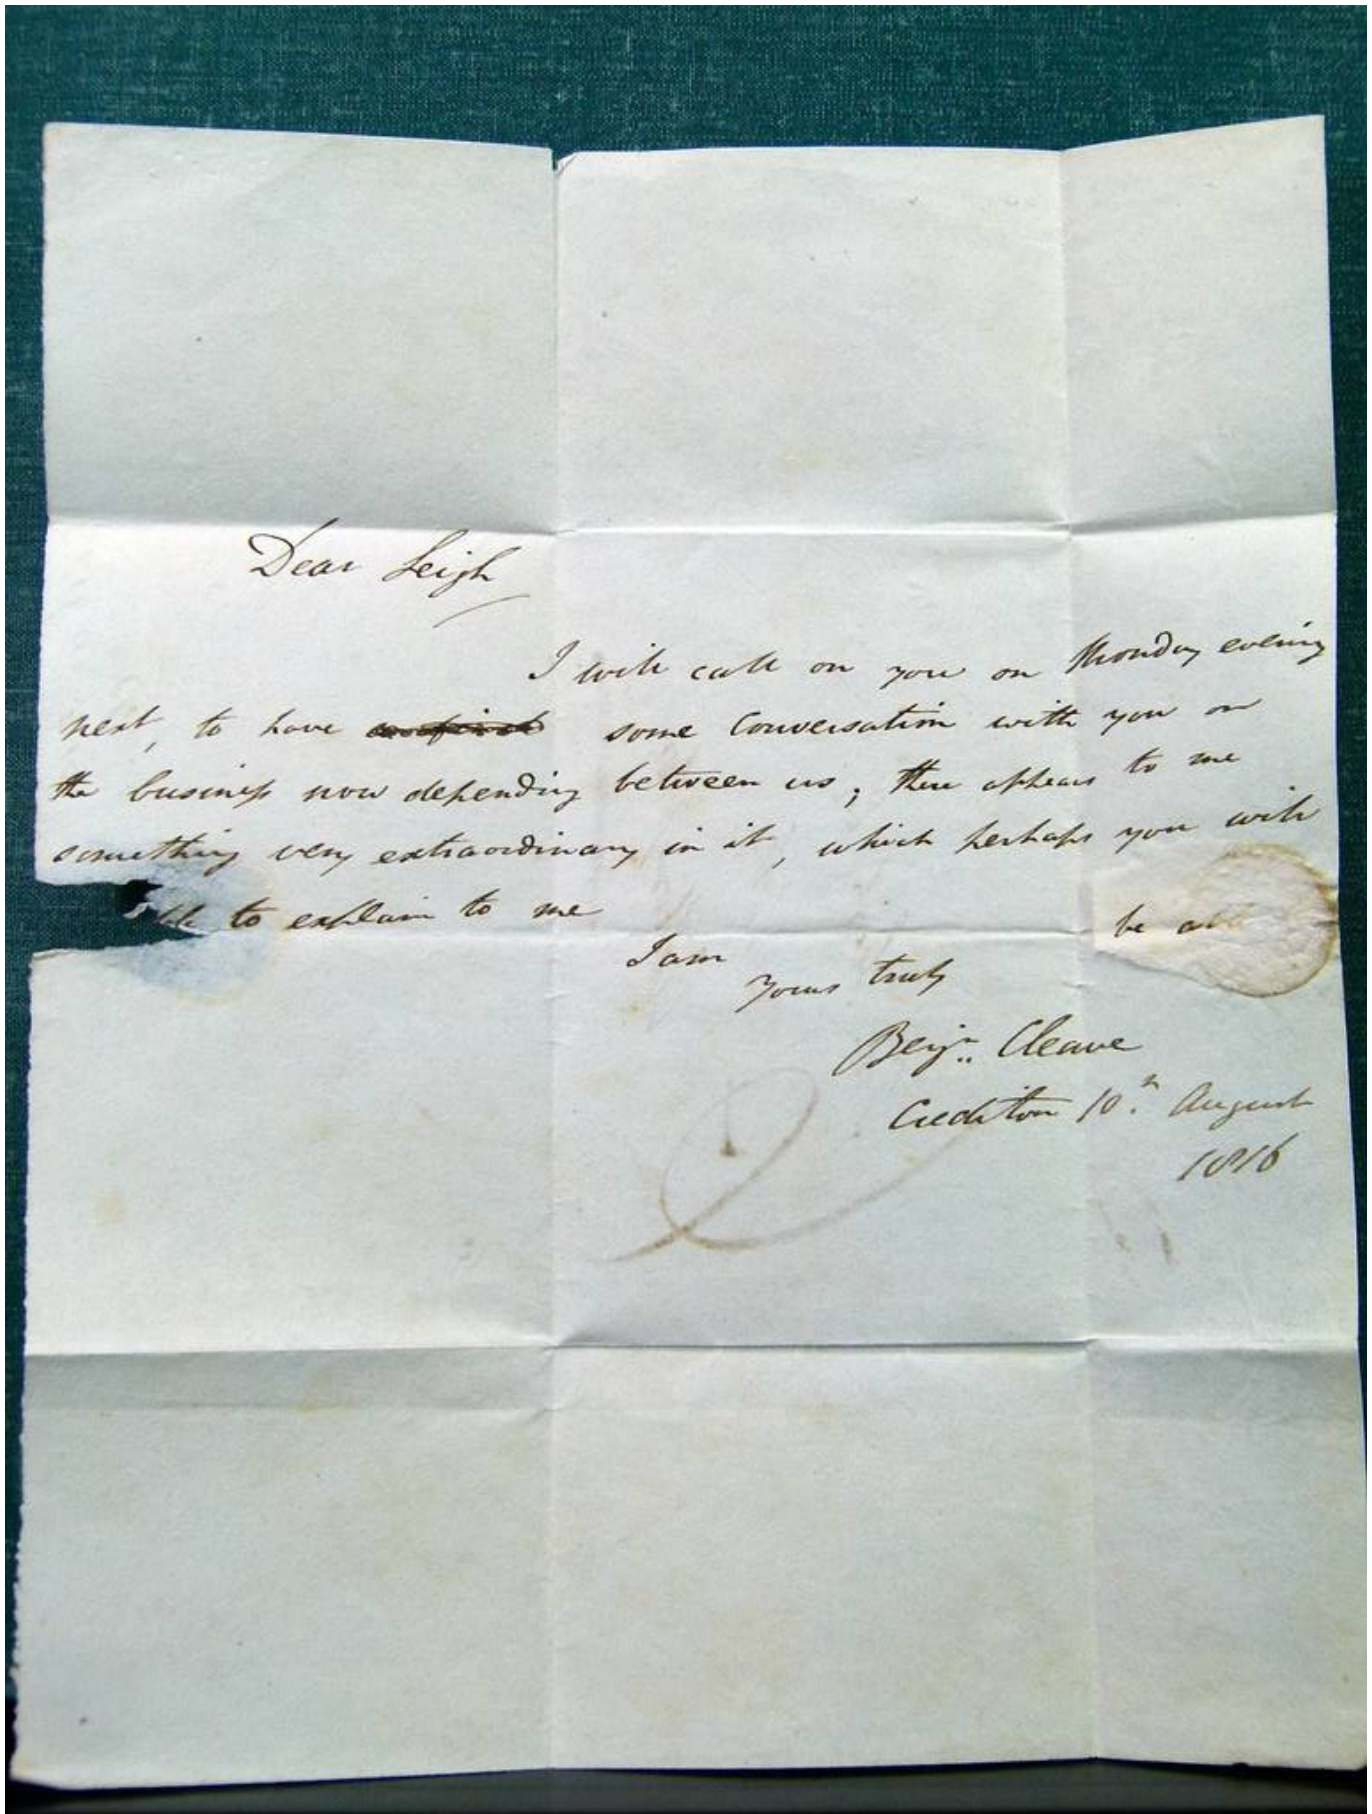 Dear Leigh
I will call on you on Monday evening
next, to have some Conversation with you on
the business now depending between us; there appears to me
something very extraordinary in it, which perhaps you will
be able to explain to me
I am
yours truly
Benjn. Cleave
Crediton 10.th August
1816